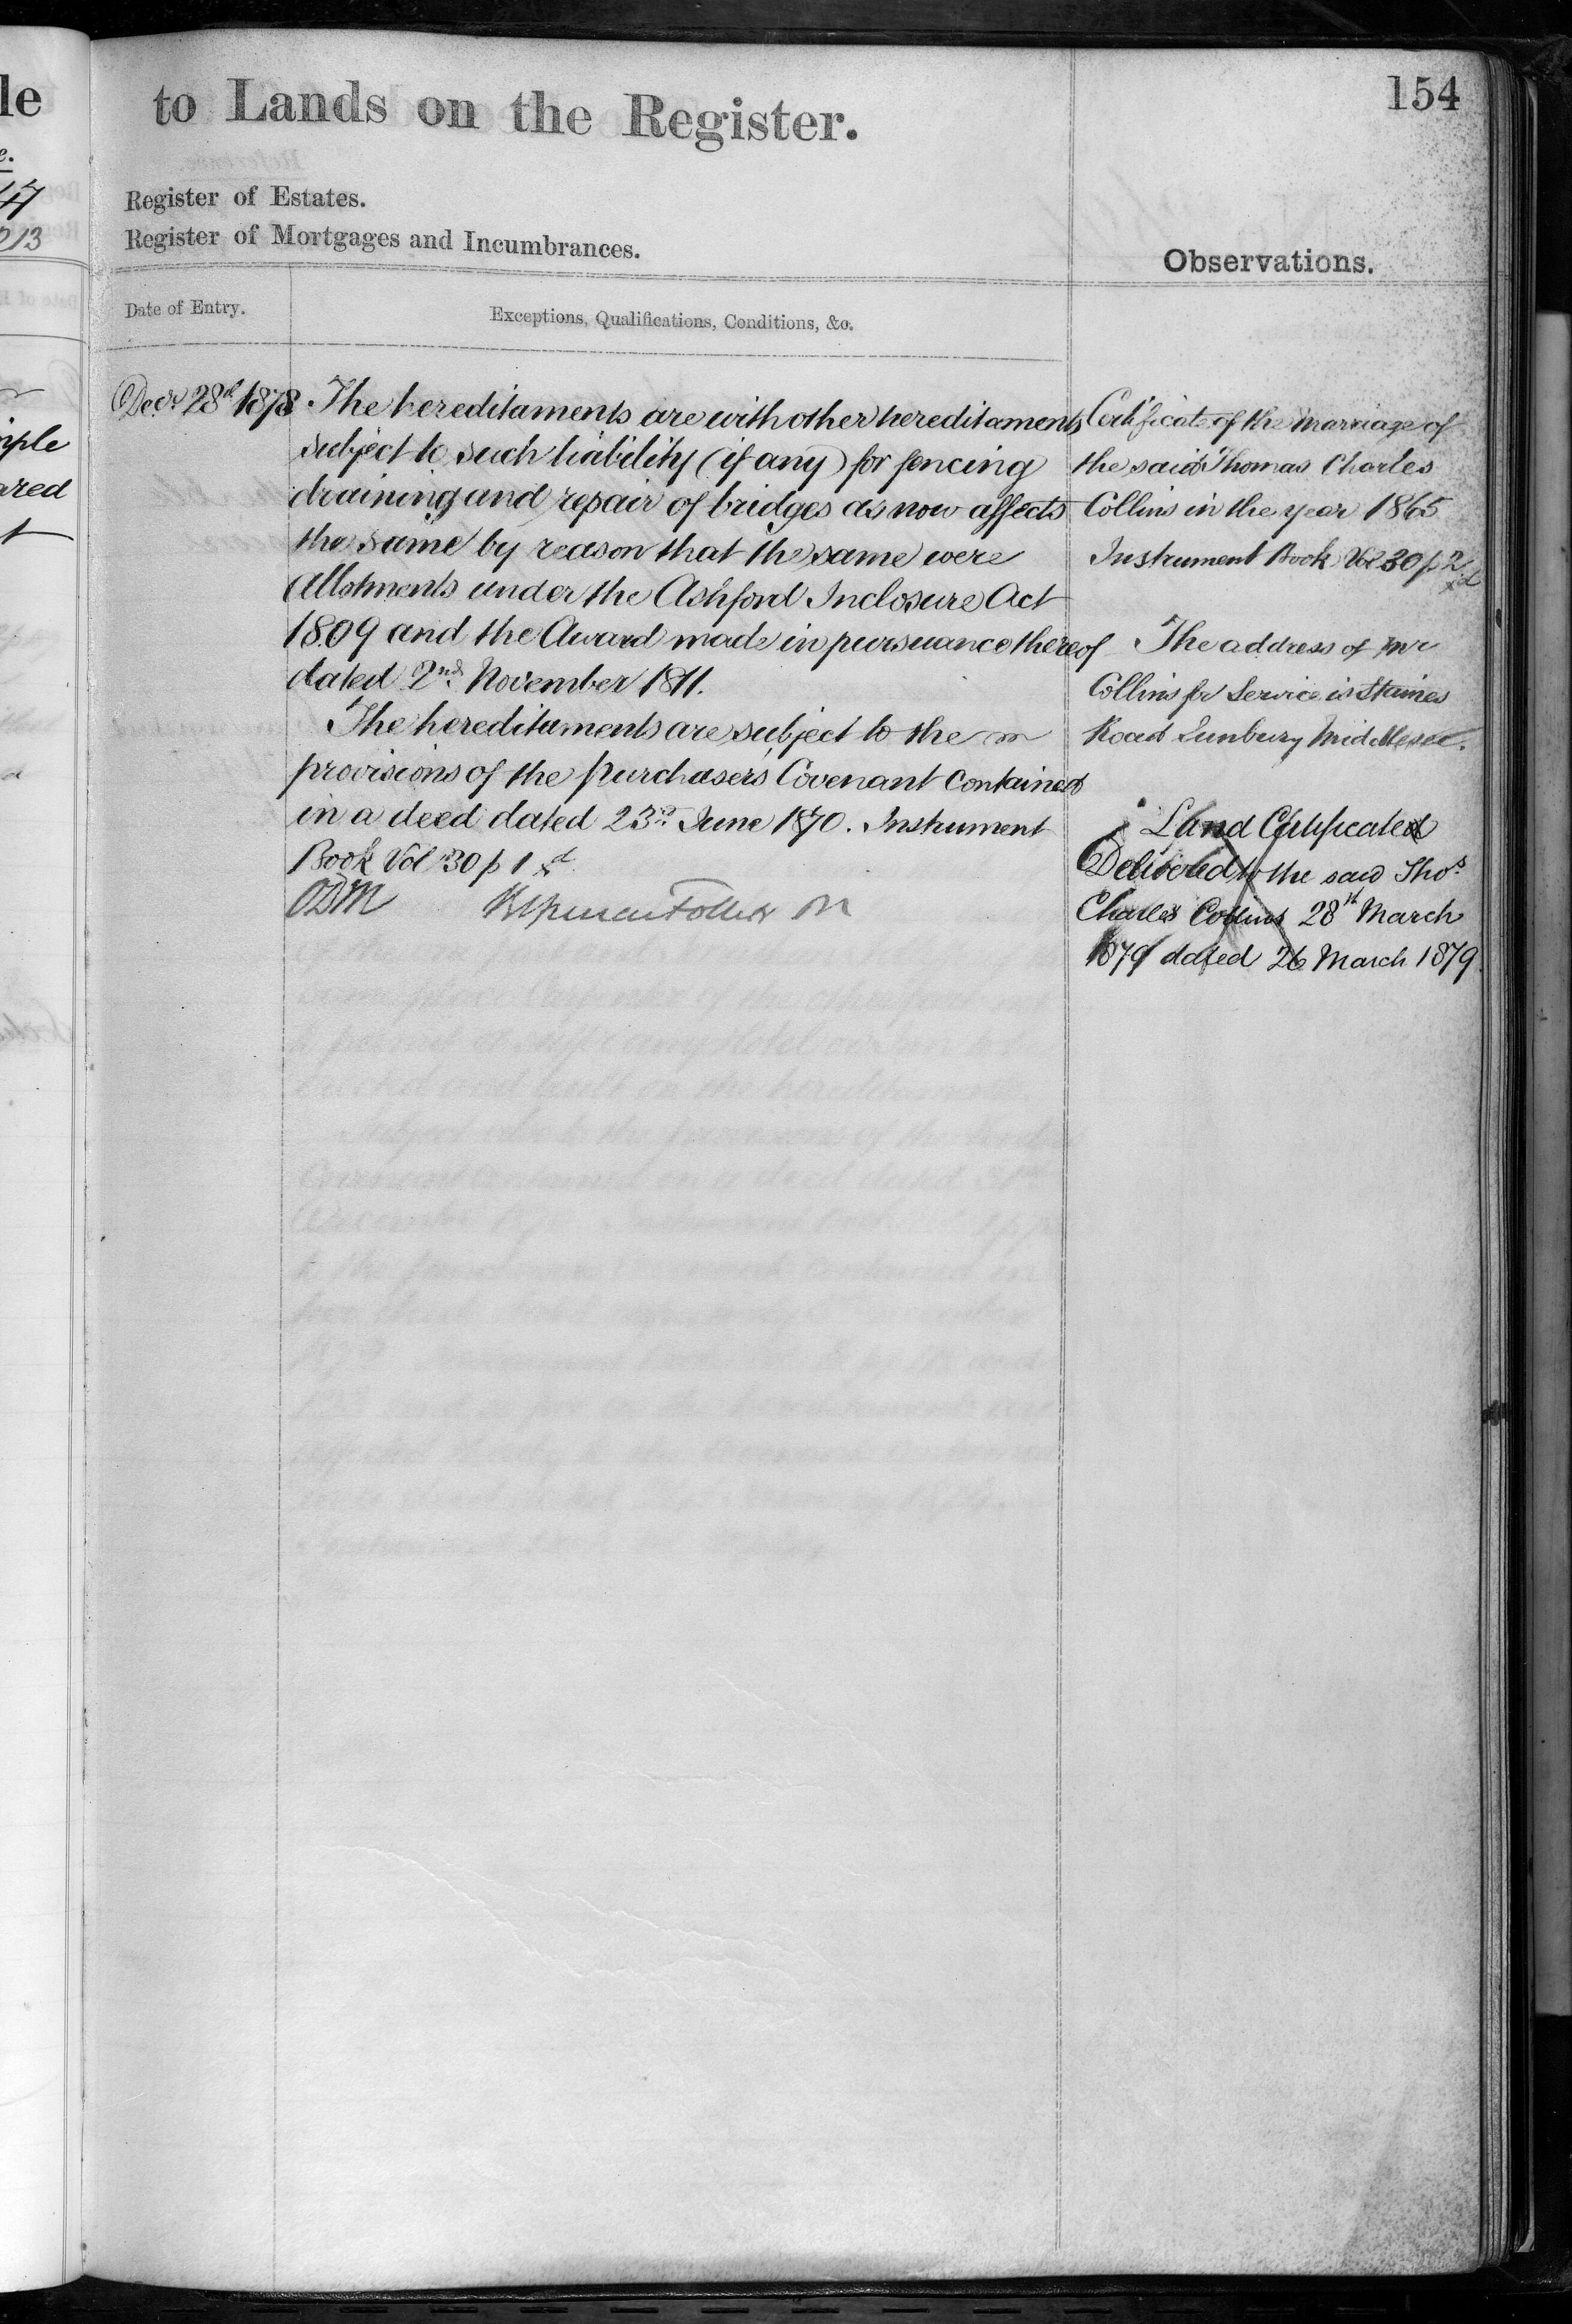 le
to Lands on the Register.
154
Register of Estates.
Register of Mortgages and Incumbrances.
Observations.
Date of Entry.
Exceptions, Qualifications, Conditions, &c.
Decr. 28th 1878
The hereditaments are with other hereditaments
subject to such liability (if any) for fencing
draining and repair of bridges as now affects
the same by reason that the same were
Allotments under the Ashford Inclosure Act
1809 and the Award made in pursuance thereof
dated 2nd November 1811.
The hereditaments are subject to the
provisions of the purchasers Covenant contained
in a deed dated 23rd June 1870. Instrument
Book Vol 30 p 1
Certificate of the marriage of
the said Thomas Charles
Collins in the year 1865
Instrument Book Vol 30 p 2
The address of Mr
Collins for Service is Staines
Road Sunbury Middlesex.
Land Certificate
Delivered to the said Thos.
Charles Collins 28th March
1879 dated 26 March 1879